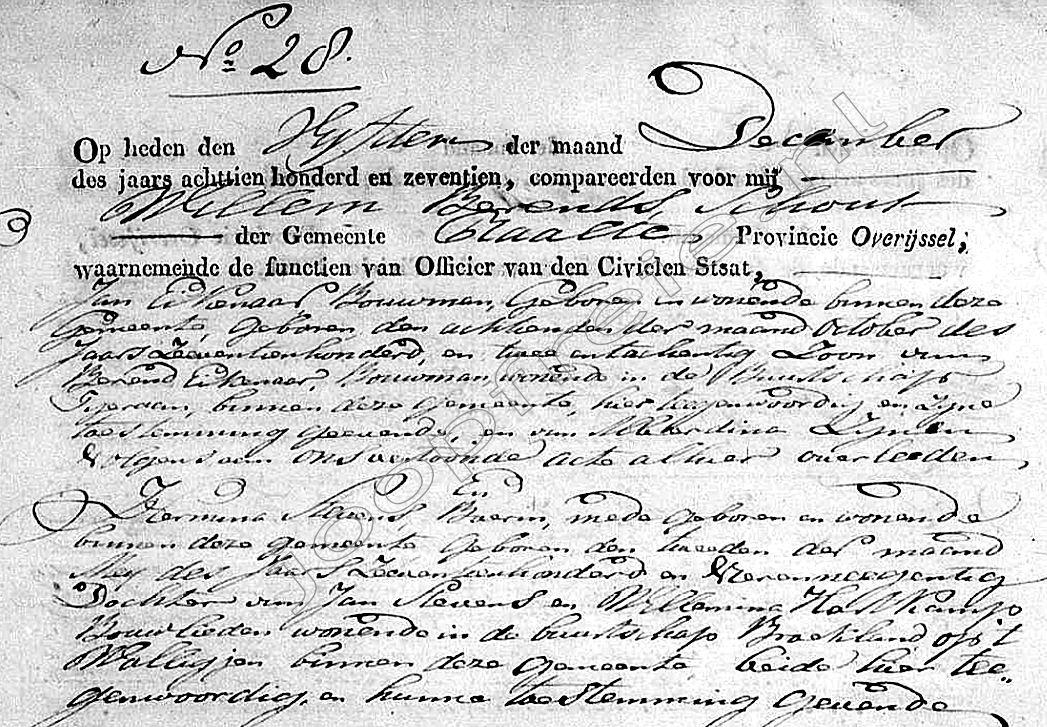 No 28.
Op heden den Vyftien der maand December
des jaars achttien honderd en zeventien, compareerden voor mij
Willem Berends, Schout
der Gemeente Raalte Provincie Overijssel;
waarnemende de functien van Officier van den Civielen Staat,
Jan Eikenaar, Bouwman, Geboren en wonende binnen deze
Gemeente, geboren den achtienden der maand October des
Jaars Zeeventienhonderd, en twee entachentig Zoon van
Berend Eikenaar, Bouwman, wonende in de Buurtschap
binnen deze gemeente, hier tegenwoordig en zyne
toestemming geevende, en van
Volgens aan ons vertoonde acte alhier overleeden
En
Hermina Stevens, Boerin, mede geboren en wonende
binnen deze gemeente geboren den tweeden der maand
Mey des Jaars Zeeventienhonderd en Vierenneegentig
Dochter van Jan Stevens en Willemina Holtkamp
Bouwlieden wonende in de buurtschap Broekland op't
binnen deze Gemeente beide hier te-
genwoordig, en hunne toestemming geevende
joopreie.nl